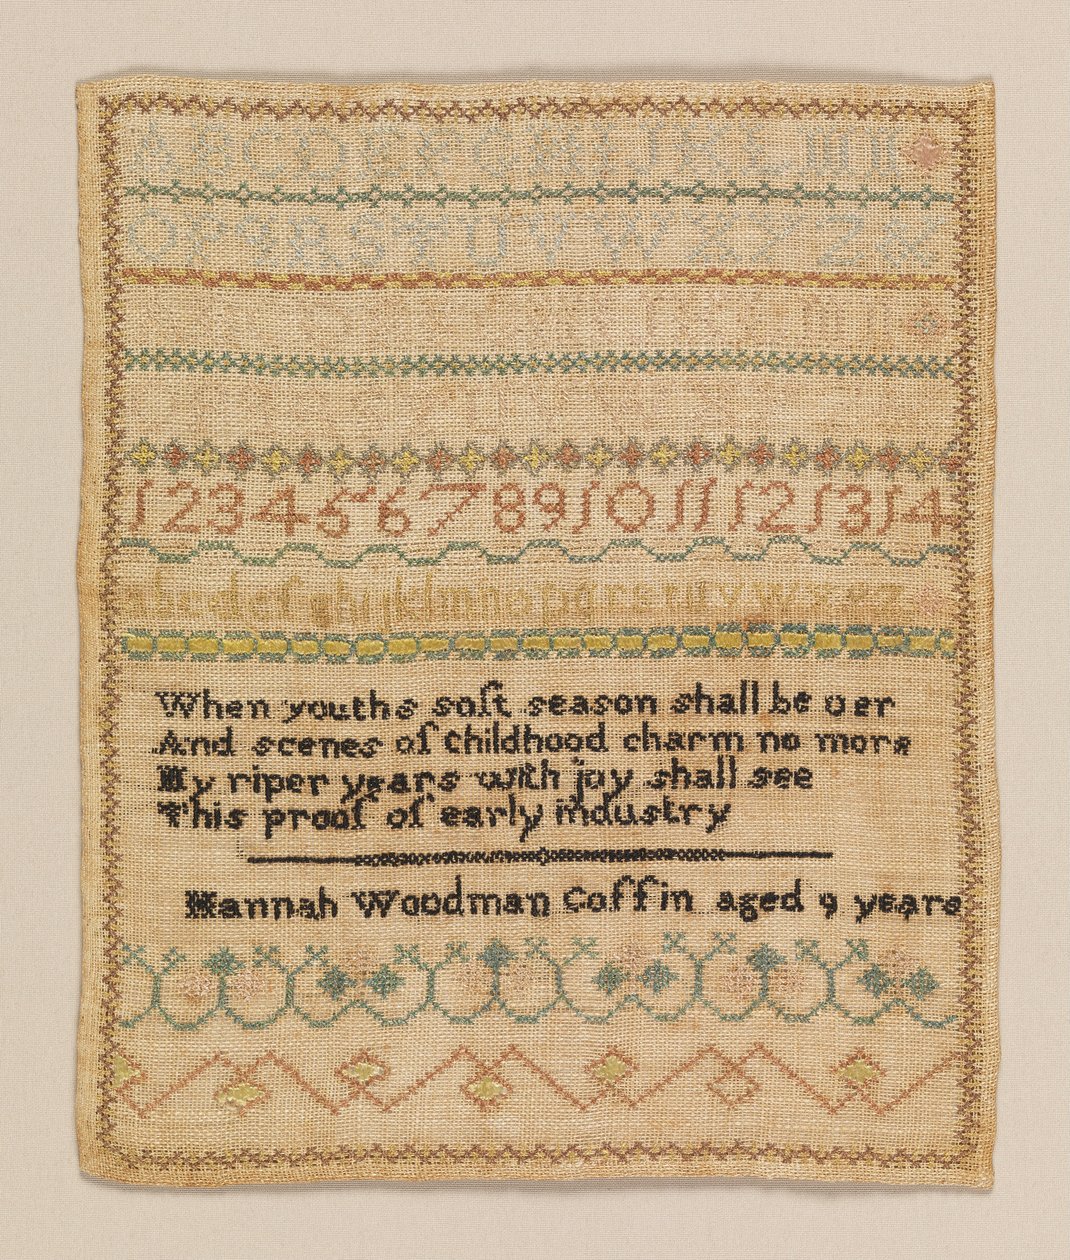 ABCDEFGHIJKLMN
OPQRSTUVWXYZ&
1234567891011121314
abcdefghijklmnopqrstuvwxyz
When youths soft season shall be oer
And scenes of childhood charm no more
My riper years with joy shall see
This proof of early industry
Hannah Woodman Coffin aged 9 years